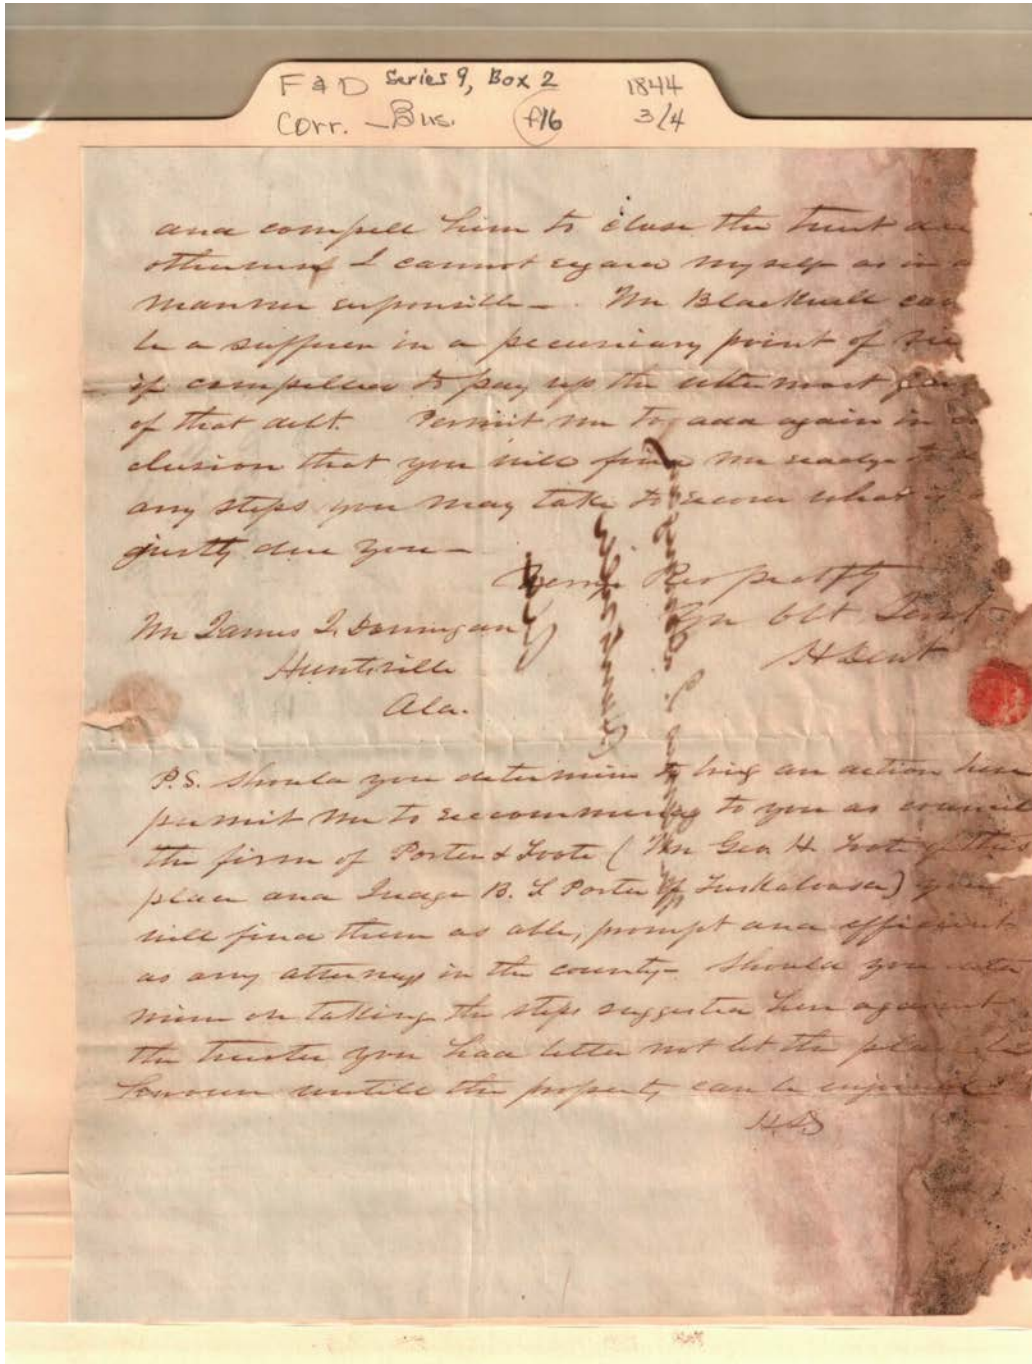 F & D Series 9, Box 2 1844
Corr. - Bus. f16 3/4
and compell him to close the trust
otherwise I cannot regard myself as in
manner responsible - Mr Blackwell can
be a sufferer in a pecuniary point of
if compelled to pay up the uttermost
of that debt. Permit me to add again in
clusion that you will find me ready
any steps you may take to recover what is
justly due you -
Very Respectfly
Yr obt Servt
Mr James I. Donnegan
H Dent
Huntsville
Ala.
P.S. Should you determine to bring an action here
permit me to reccommend to you as council
the firm of Porter & Foote (Mr Geo H. Foote of this
place and Judge B. F Porter of Tuskaloosa) you
will find them as able, prompt and efficient
as any attorneys in the county - Should you deter
mine on taking the steps suggested here against
the trustee you had better not let the plan be
known untill the property can be
H.D